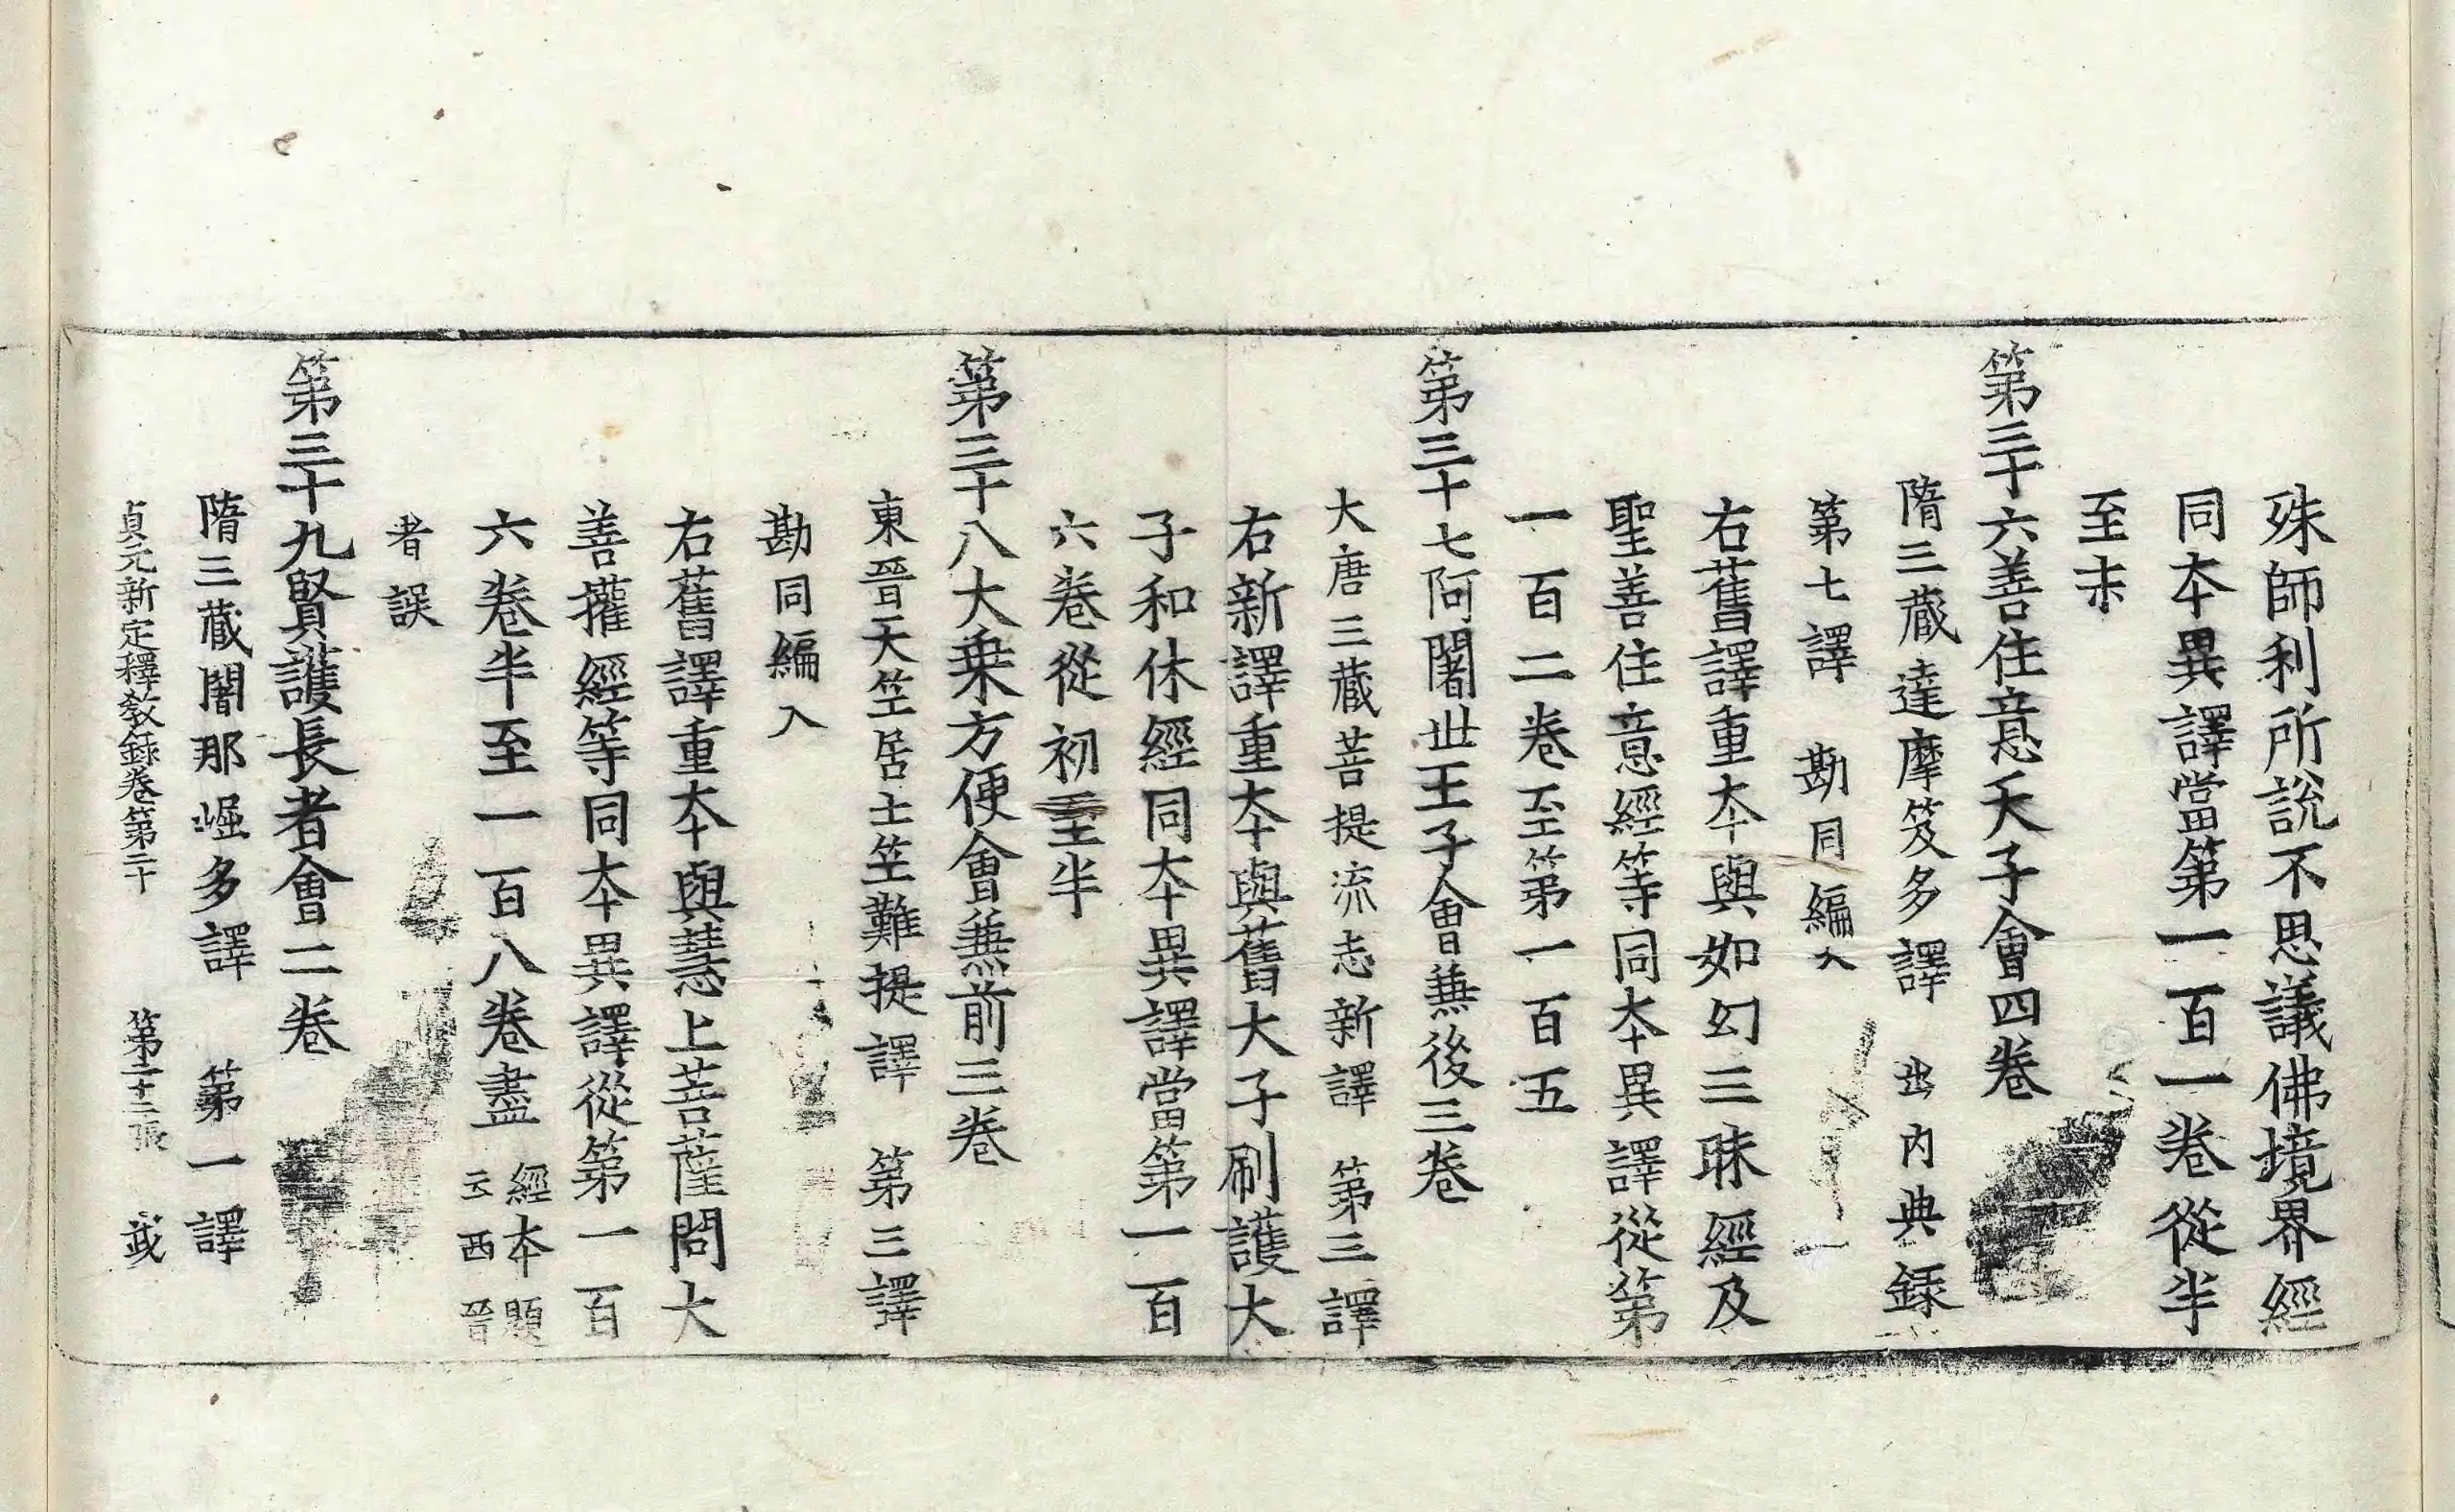 殊師利所說不思議佛境界經
同夲異譯當第一百一卷從半
至末
第三十六善住意天子會四卷
隋三藏達摩笈多譯 出內典錄
第七譯 勘同編入
右舊譯重夲與如幻三昧經及
聖善住意經等同夲異譯從第
一百二卷至第一百五
第三十七阿闍世王子會𠔥後三卷
大唐三藏菩提流志新譯 第三譯
右新譯重夲與舊大子刷護大
子和休經同夲異譯當第一百
六卷從初至半
第三十八大乗方便會𠔥前三卷
東晉天竺居士竺難提譯 第三譯
勘同編入
右舊譯重夲與慧上菩薩問大
善攉經等同夲異譯從第一百
六卷半至一百八卷盡 經夲題云西晉
者誤
第三十九賢護長者會二卷
隋三藏闍那崛多譯 第一譯
貞元新定釋敎錄卷第二十 第二十二張 㦯